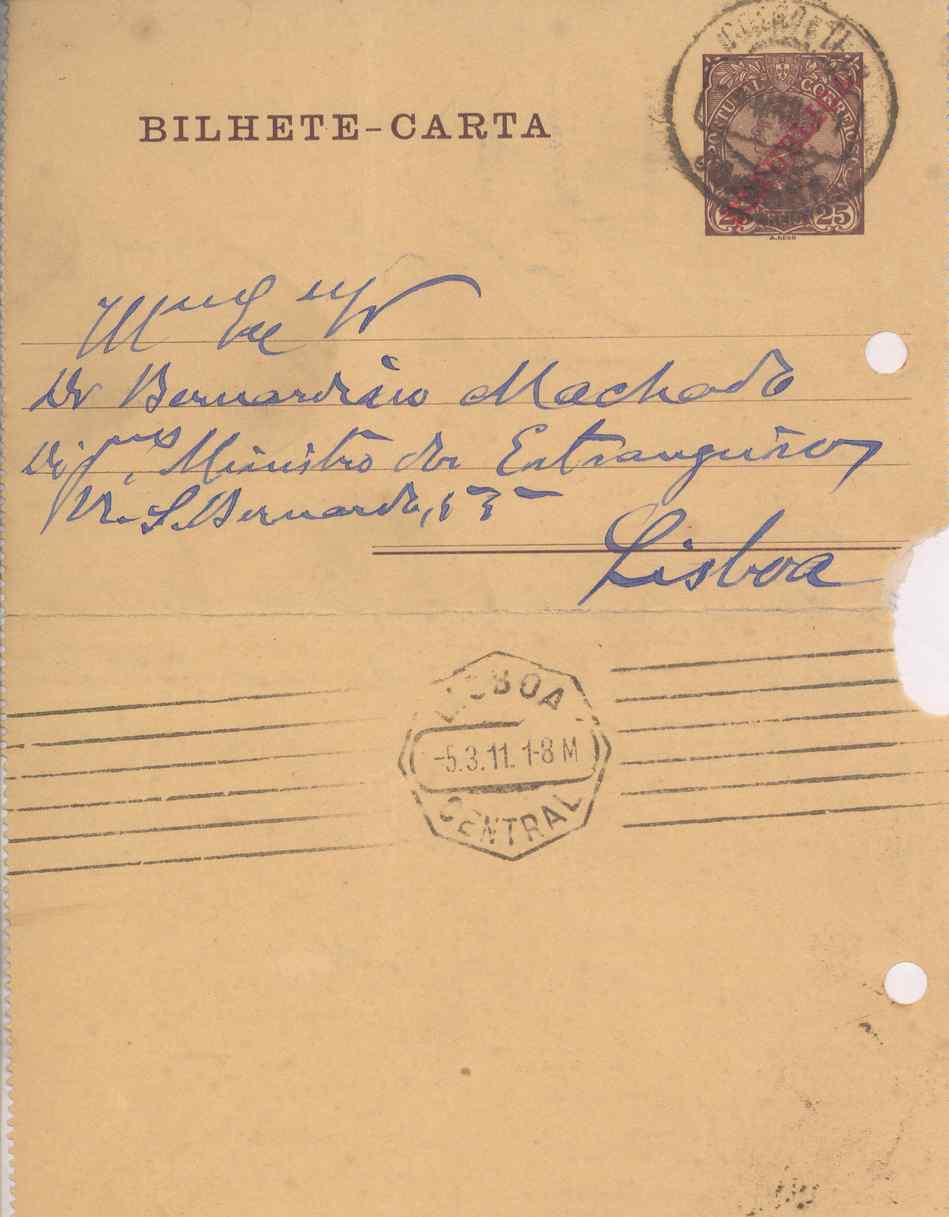 BILHETE-CARTA
PORTUGAL CORREIOS
REPUBLICA
25 25
Dr Bernardino Machado
Ministro dos Estrangeiros
R. S. Bernardo,
Lisboa
LISBOA
-5.3.11. 1-8 M
CENTRAL